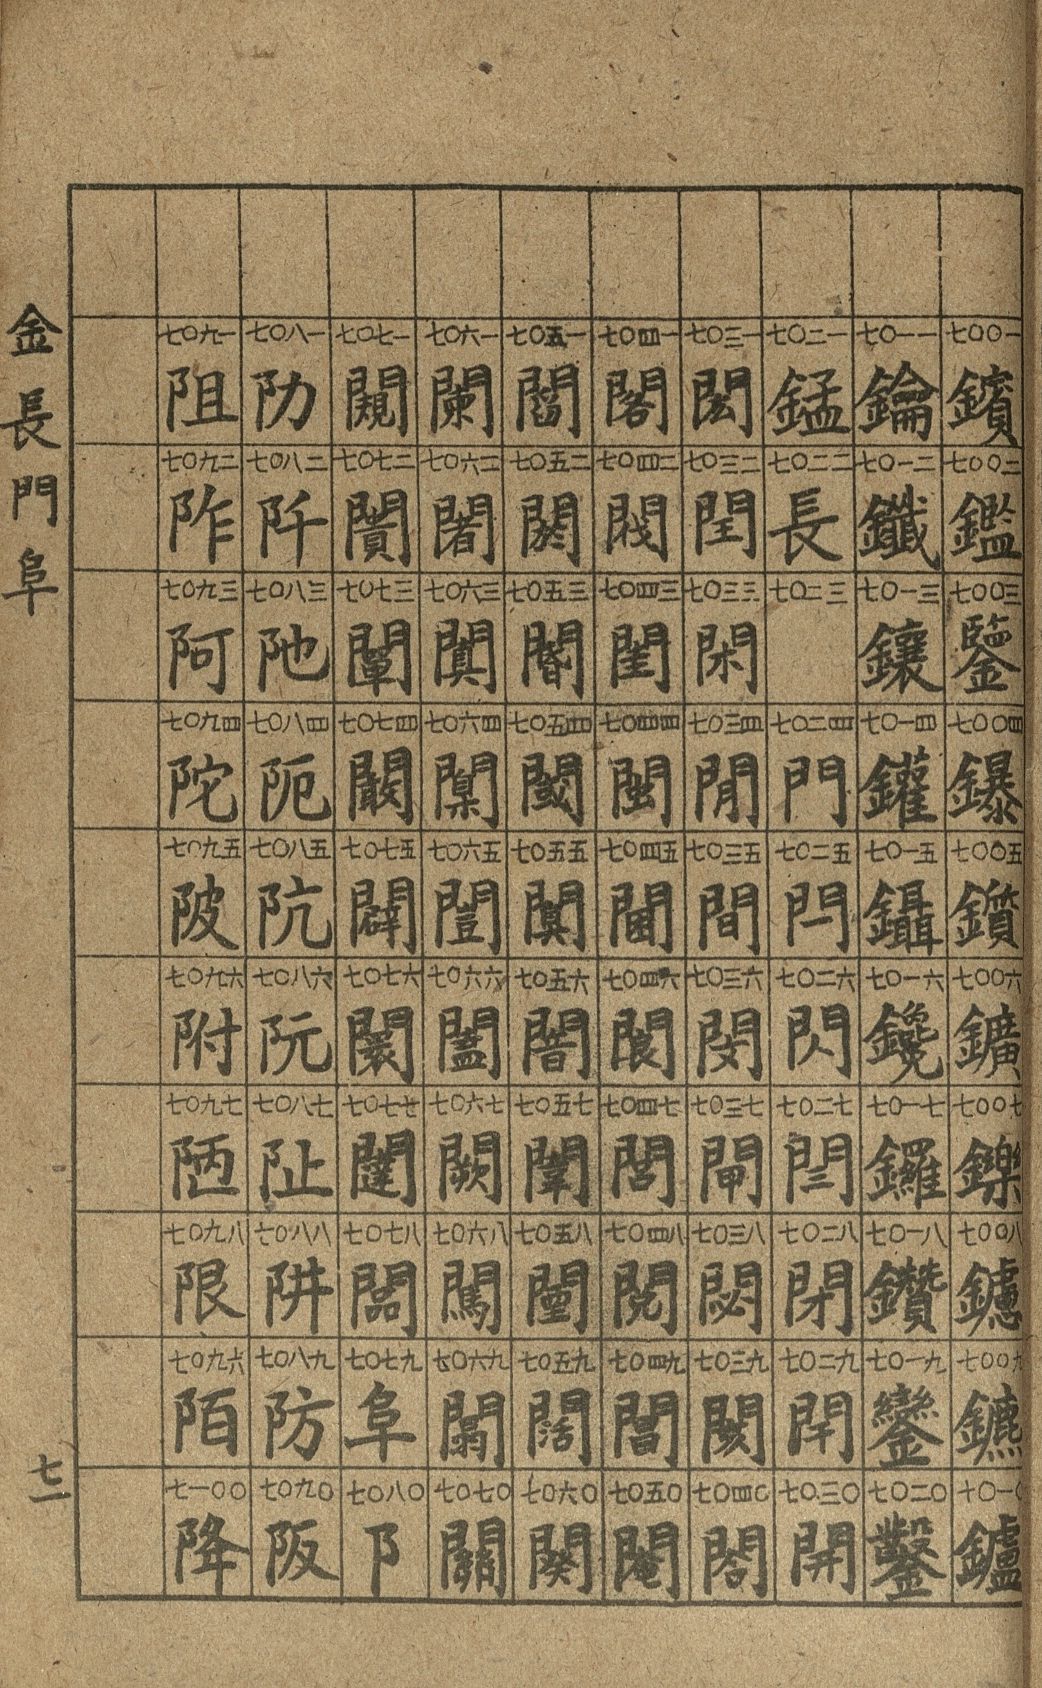 七〇〇一
鑌
七〇〇二
鑑
七〇〇三
鑒
七〇〇四
鑤
七〇〇五
鑕
七〇〇六
鑛
七〇〇七
鑠
七〇〇八
鑢
七〇〇九
鑣
十〇一〇
鑪
七〇一一
鑰
七〇一二
鑯
七〇一三
鑲
七〇一四
鑵
七〇一五
鑷
七〇一六
鑱
七〇一七
鑼
七〇一八
鑽
七〇一九
鑾
七〇二〇
鑿
七〇二一
錳
七〇二二
長
七〇二三
七〇二四
門
七〇二五
閂
七〇二六
閃
七〇二七
閆
七〇二八
閉
七〇二九
閈
七〇三〇
開
七〇三一
閎
七〇三二
閏
七〇三三
閑
七〇三四
閒
七〇三五
間
七〇三六
閔
七〇三七
閘
七〇三八
閟
七〇三九
閡
七〇四〇
閤
七〇四一
閣
七〇四二
閥
七〇四三
閨
七〇四四
閩
七〇四五
閫
七〇四六
閬
七〇四七
閭
七〇四八
閱
七〇四九
閶
七〇五〇
閹
七〇五一
閻
七〇五二
閼
七〇五三
閽
七〇五四
閾
七〇五五
闃
七〇五六
闇
七〇五七
闈
七〇五八
闉
七〇五九
闊
七〇六〇
闋
七〇六一
闌
七〇六二
闍
七〇六三
闐
七〇六四
闑
七〇六五
闓
七〇六六
闔
七〇六七
闕
七〇六八
闖
七〇六九
闒
七〇七〇
關
七〇七一
闚
七〇七二
闠
七〇七三
闡
七〇七四
闞
七〇七五
闢
七〇七六
闤
七〇七七
闥
七〇七八
闆
七〇七九
阜
七〇八〇
阝
七〇八一
阞
七〇八二
阡
七〇八三
阤
七〇八四
阨
七〇八五
阬
七〇八六
阮
七〇八七
阯
七〇八八
阱
七〇八九
防
七〇九〇
阪
七〇九一
阻
七〇九二
阼
七〇九三
阿
七〇九四
陀
七〇九五
陂
七〇九六
附
七〇九七
陋
七〇九八
限
七〇九六
陌
七一〇〇
降
金長門阜
七一